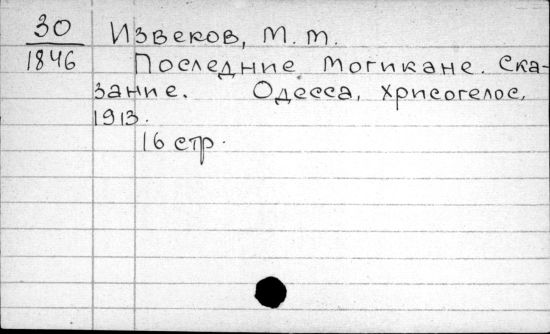 30
1846
Извеков, М. М.
Последние Могикане. Ска-
зание. Одесса, Хрисогелос,
1913.
16 стр.